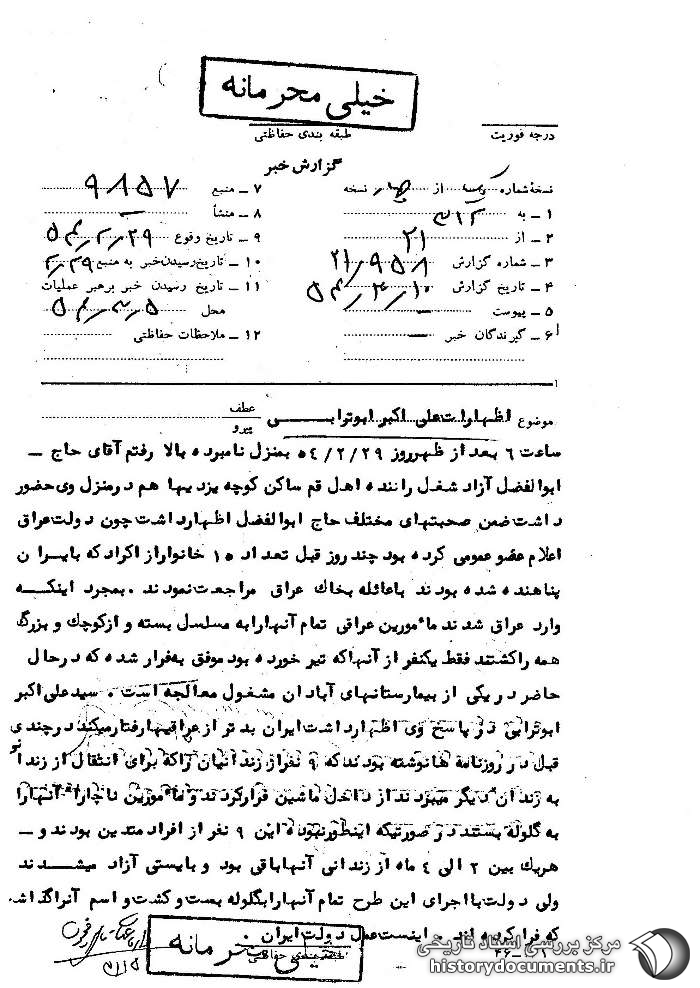 خیلی محرمانه
درجه فوریت
طبقه بندی حفاظتی
گزارش خبر
نسخهٔ شماره یک از چهار نسخه
۱ ـ به ۳۱۲
۲ ـ از ۲۱
۳ ـ شماره گزارش ۲۱٫۹۵۸
۴ ـ تاریخ گزارش ۵۴٫۳٫۱۰
۵ ـ پیوست —
۶ ـ گیرندگان خبر —
۷ ـ منبع ۹۸۵۷
۸ ـ منشأ —
۹ ـ تاریخ وقوع ۵۴٫۲٫۲۹
۱۰ ـ تاریخ رسیدن خبر به منبع ۲٫۲۹
۱۱ ـ تاریخ رسیدن خبر برهبر عملیات
محل ۵۴٫۳٫۵
۱۲ ـ ملاحظات حفاظتی
موضوع اظهارات علی اکبر ابوترابی
عطف
پیرو
ساعت ۶ بعد از ظهر روز ۵۴/۲/۲۹ بمنزل نامبرده بالا رفتم آقای حاج ـ
ابوالفضل آزاد شغل راننده اهل قم ساکن کوچه یزدیها هم در منزل وی حضور
داشت ضمن صحبتهای مختلف حاج ابوالفضل اظهارداشت چون دولت عراق
اعلام عفو عمومی کرده بود چند روز قبل تعداد ۱۵ خانوار از اکراد که بایران
پناهنده شده بودند باعائله بخاک عراق مراجعت نمودند . بمجرد اینکه
وارد عراق شدند مأمورین عراقی تمام آنهارا به مسلسل بسته و ازکوچک و بزرگ
همه راکشتند فقط یکنفر از آنها که تیر خورده بود موفق بفرار شده که درحال
حاضر در یکی از بیمارستانهای آبادان مشغول معالجه است . سیدعلی اکبر
ابوترابی در پاسخ وی اظهارداشت ایران بدتر از عراقیهارفتارمیکند در چندی
قبل در روزنامه هانوشته بودند که ۹ نفر از زندانیان راکه برای انتقال از زندانی
به زندان دیگر میبردند از داخل ماشین فرارکردند و مأمورین ناچارا آنهارا
به گلوله بستند در صورتیکه اینطور نبوده این ۹ نفر از افراد متدین بودند و ـ
هریک بین ۲ الی ۴ ماه از زندانی آنهاباقی بود و بایستی آزاد میشدند
ولی دولت بااجرای این طرح تمام آنهارا بگلوله بست و کشت و اسم آنراگذاشت
که فرارکرده اند . اینست عمل دولت ایران .
طبقه بندی حفاظتی
خیلی محرمانه
مرکز بررسی اسناد تاریخی
historydocuments.ir